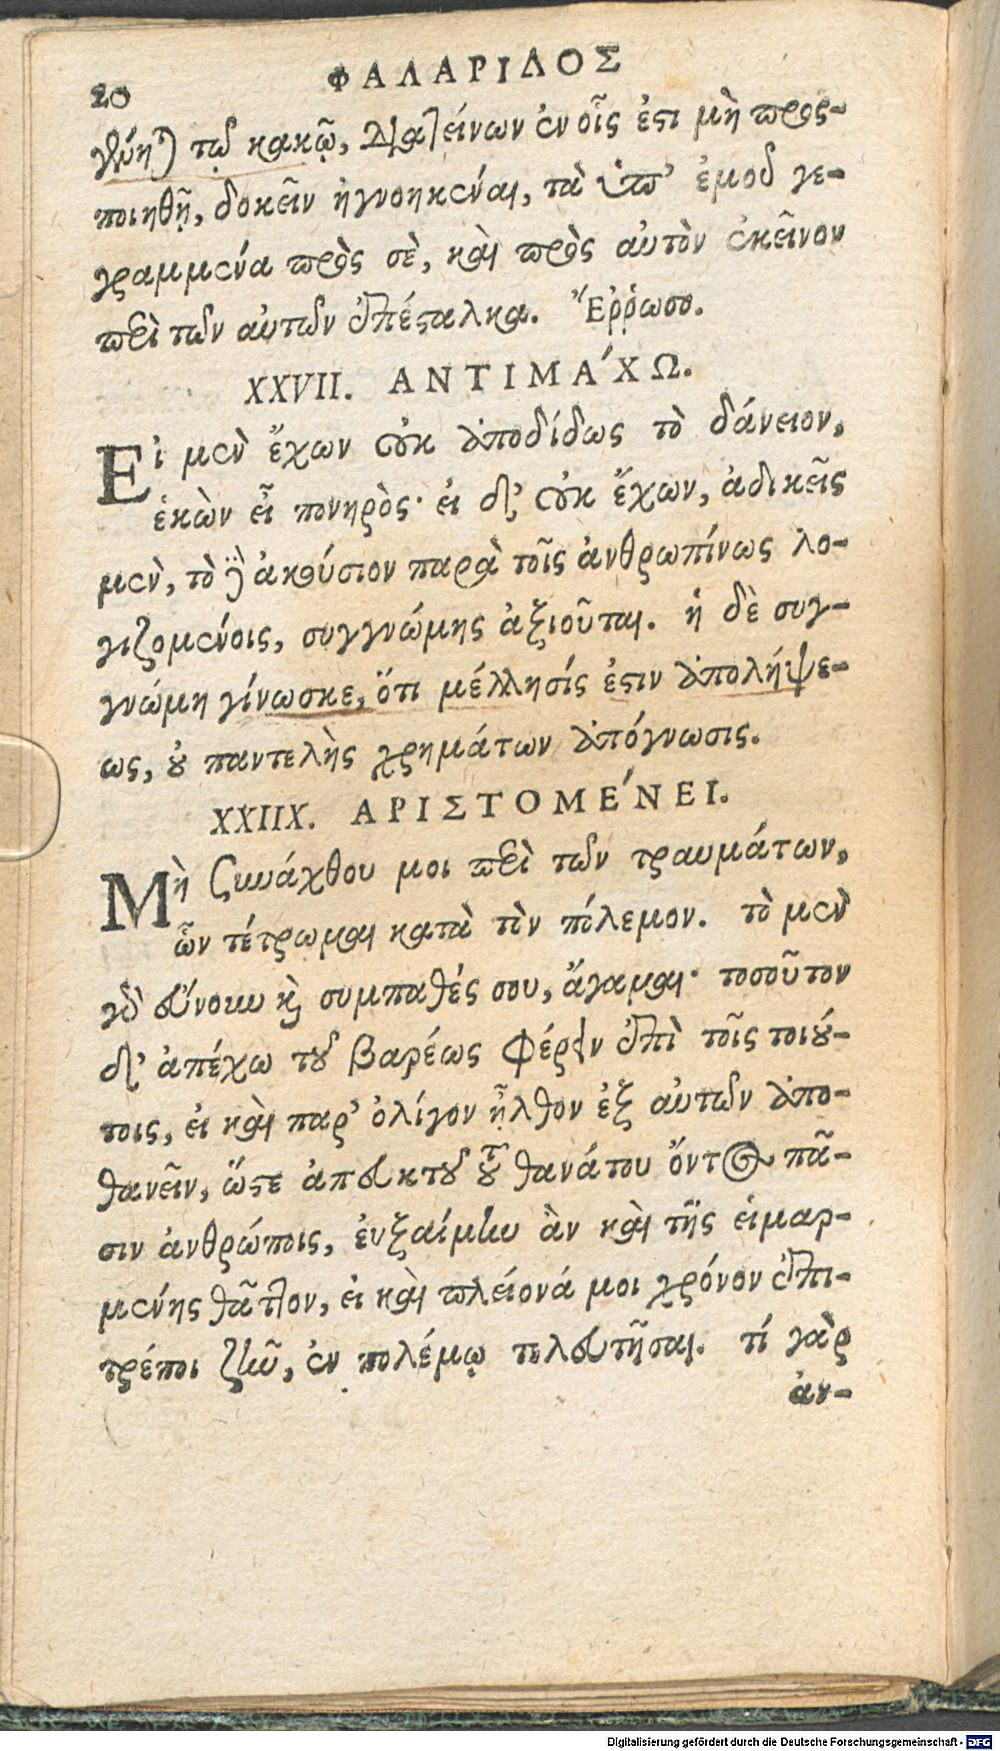 20
ΦΑΛΑΡΙΔΟΣ
γένηται τῷ κακῷ, διατείνων ἐν οἷς ἔστι μὴ προσ-
ποιηθῇ, δοκεῖν ἠγνοηκέναι, τὰ ὑπ' ἐμοῦ γε-
γραμμένα πρὸς σὲ, καὶ πρὸς αὐτὸν ἐκεῖνον
περὶ τῶν αὐτῶν ἐπέσταλκα. Ἔῤῥωσο.
XXVII. ΑΝΤΙΜΑ΄ΧΩ.
Εἰ μὲν ἔχων οὐκ ἀποδίδως τὸ δάνειον,
ἑκὼν εἶ πονηρὸς· εἰ δ' οὐκ ἔχων, ἀδικεῖς
μὲν, τὸ δὲ ἀκούσιον παρὰ τοῖς ἀνθρωπίνως λο-
γιζομένοις, συγγνώμης ἀξιοῦται. ἡ δὲ συγ-
γνώμη γίνωσκε, ὅτι μέλλησίς ἐστιν ἀπολήψε-
ως, οὐ παντελὴς χρημάτων ἀπόγνωσις.
XXIIX. ΑΡΙΣΤΟΜΕ΄ΝΕΙ.
Μὴ συνάχθου μοι περὶ τῶν τραυμάτων,
ὧν τέτρωμαι κατὰ τὸν πόλεμον. τὸ μὲν
γὰρ εὔνουν καὶ συμπαθές σου, ἄγαμαι· τοσοῦτον
δ' ἀπέχω τοῦ βαρέως φέρειν ἐπὶ τοῖς τοιού-
τοις, εἰ καὶ παρ' ὀλίγον ἦλθον ἐξ αὐτῶν ἀπο-
θανεῖν, ὥστε ἀπευκτοῦ τοῦ θανάτου ὄντος πᾶ-
σιν ἀνθρώποις, εὐξαίμην ἂν καὶ τῆς εἱμαρ-
μένης θᾶττον, εἰ καὶ πλείονά μοι χρόνον ἐπι-
τρέποι ζῆν, ἐν πολέμῳ τελευτῆσαι. τί γὰρ
ἀν-
Digitalisierung gefördert durch die Deutsche Forschungsgemeinschaft - DFG